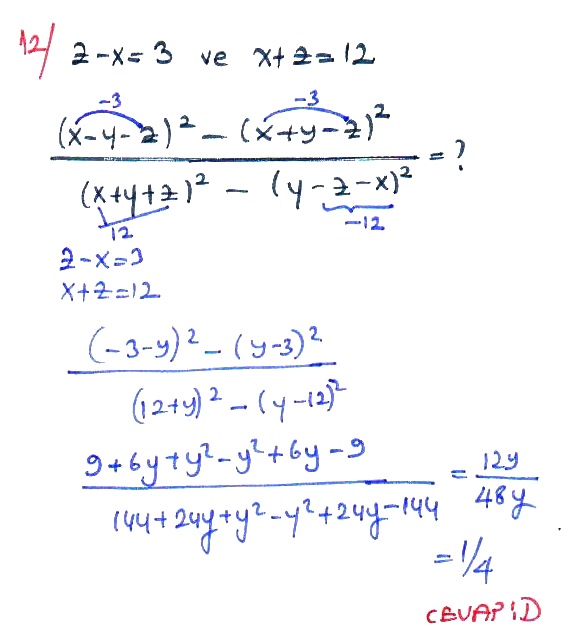 12/ z-x=3 ve x+z=12
-3 -3
(x-y-z)² - (x+y-z)²
= ?
(x+y+z)² - (y-z-x)²
12 -12
z-x=3
x+z=12
(-3-y)² - (y-3)²
(12+y)² - (y-12)²
9+6y+y²-y²+6y-9 = 12y
144+24y+y²-y²+24y-144 48y
= 1/4
CEVAP:D